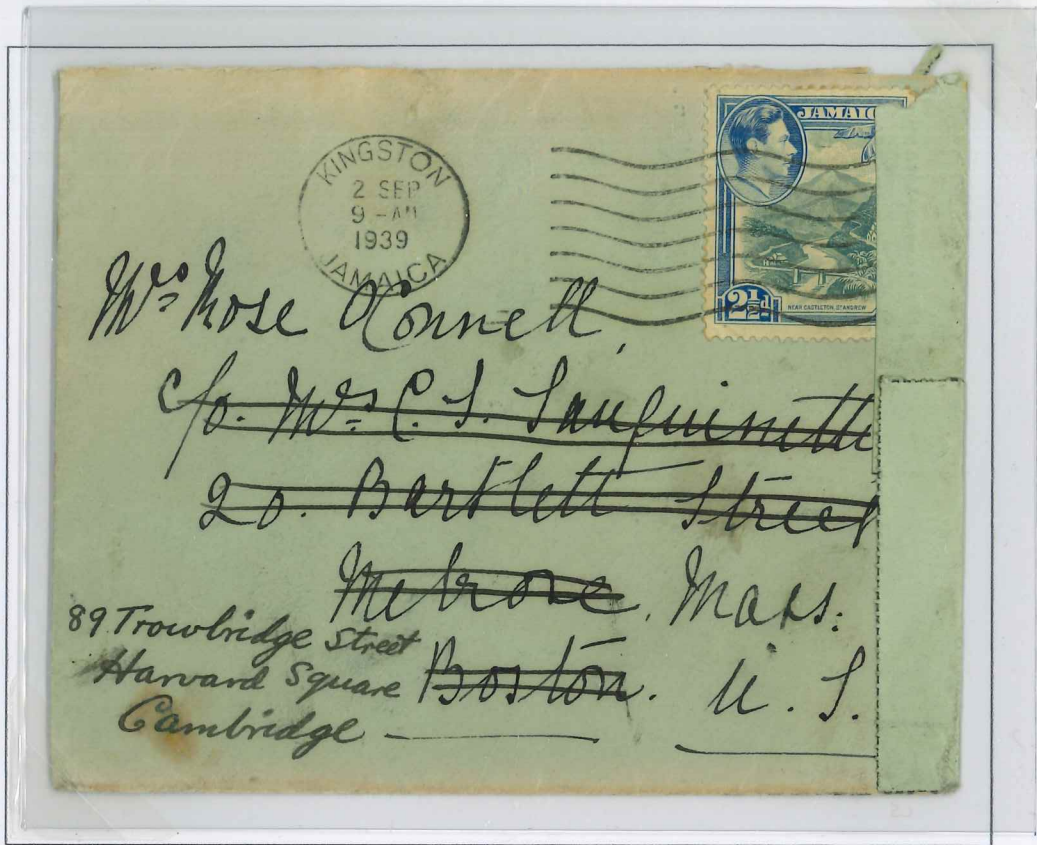 KINGSTON
2 SEP
9 - AM
1939
JAMAICA
JAMAIC
2½d
NEAR CASTLETON, ST ANDREW
Mrs Rose O'Connell,
c/o. Mrs C. S. Sanguinetti
20. Bartlett Street
Melrose. Mass.
Boston. U. S.
89 Trowbridge Street
Harvard Square
Cambridge